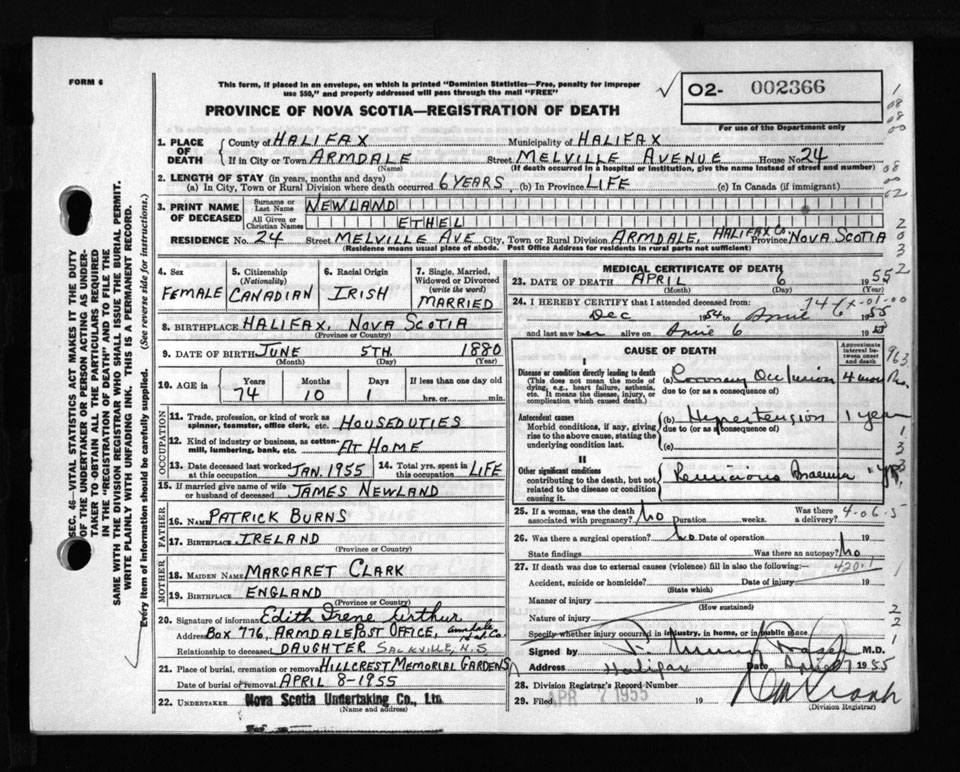 FORM 6
This form, if placed in an envelope, on which is printed "Dominion Statistics—Free, penalty for improper
use $50," and properly addressed will pass through the mail "FREE"
PROVINCE OF NOVA SCOTIA—REGISTRATION OF DEATH
O2- 002366
For use of the Department only
SEC. 46—VITAL STATISTICS ACT MAKES IT THE DUTY
OF THE UNDERTAKER OR PERSON ACTING AS UNDER-
TAKER TO OBTAIN ALL THE PARTICULARS REQUIRED
IN THE "REGISTRATION OF DEATH" AND TO FILE THE
SAME WITH THE DIVISION REGISTRAR WHO SHALL ISSUE THE BURIAL PERMIT.
WRITE PLAINLY WITH UNFADING INK. THIS IS A PERMANENT RECORD.
Every item of information should be carefully supplied. (See reverse side for instructions.)
1. PLACE OF DEATH
County of HALIFAX Municipality of HALIFAX
If in City or Town ARMDALE Street MELVILLE AVENUE House No. 24
(Name) (If death occurred in a hospital or institution, give the name instead of street and number)
2. LENGTH OF STAY (in years, months and days)
(a) In City, Town or Rural Division where death occurred 6 YEARS, (b) In Province LIFE (c) In Canada (if immigrant)
3. PRINT NAME OF DECEASED
Surname or Last Name NEWLAND
All Given or Christian Names ETHEL
RESIDENCE No. 24 Street MELVILLE AVE City, Town or Rural Division ARMDALE, HALIFAX Co. Province NOVA SCOTIA
(Residence means usual place of abode. Post Office Address for residents in rural parts not sufficient)
4. Sex FEMALE
5. Citizenship (Nationality) CANADIAN
6. Racial Origin IRISH
7. Single, Married, Widowed or Divorced (write the word) MARRIED
8. BIRTHPLACE HALIFAX, NOVA SCOTIA
(Province or Country)
9. DATE OF BIRTH JUNE 5TH 1880
(Month) (Day) (Year)
10. AGE IN Years 74 Months 10 Days 1 If less than one day old
hrs. or min.
OCCUPATION
11. Trade, profession, or kind of work as
spinner, teamster, office clerk, etc. HOUSEDUTIES
12. Kind of industry or business, as cotton-
mill, lumbering, bank, etc. AT HOME
13. Date deceased last worked at this occupation JAN. 1955 14. Total yrs. spent in this occupation LIFE
15. If married give name of wife or husband of deceased JAMES NEWLAND
FATHER
16. NAME PATRICK BURNS
17. BIRTHPLACE IRELAND
(Province or Country)
MOTHER
18. MAIDEN NAME MARGARET CLARK
19. BIRTHPLACE ENGLAND
(Province or Country)
20. Signature of informant Edith Irene Arthur
Address BOX 776, ARMDALE POST OFFICE, Armdale Hfx. Co.
Relationship to deceased DAUGHTER SACKVILLE, N.S
21. Place of burial, cremation or removal HILLCREST MEMORIAL GARDENS
Date of burial or removal APRIL 8-1955
22. UNDERTAKER Nova Scotia Undertaking Co., Ltd.
(Name and address)
MEDICAL CERTIFICATE OF DEATH
23. DATE OF DEATH APRIL 6 1955
(Month) (Day) (Year)
24. I HEREBY CERTIFY that I attended deceased from:
Dec 1954 to April 6 1955
and last saw her alive on April 6 1955
CAUSE OF DEATH
Approximate interval between onset and death
I
Disease or condition directly leading to death
(This does not mean the mode of
dying, e.g., heart failure, asthenia,
etc. It means the disease, injury, or
complication which caused death.)
(a) Coronary Occlusion
due to (or as consequence of)
Antecedent causes
Morbid conditions, if any, giving
rise to the above cause, stating the
underlying condition last.
(b) Hypertension 1 year
due to (or as consequence of)
(c)
II
Other significant conditions
contributing to the death, but not
related to the disease or condition
causing it.
Pernicious Anaemia
25. If a woman, was the death
associated with pregnancy? No Duration weeks. Was there
a delivery?
4-06.5
26. Was there a surgical operation? No Date of operation 19
State findings Was there an autopsy? No
27. If death was due to external causes (violence) fill in also the following:—
420.1
Accident, suicide or homicide? Date of injury 19
(State which)
Manner of injury
(How sustained)
Nature of injury
Specify whether injury occurred in industry, in home, or in public place.
Signed by M.D.
Address Halifax Date April 7 1955
28. Division Registrar's Record Number
29. Filed APR 7 1955 19
(Division Registrar)